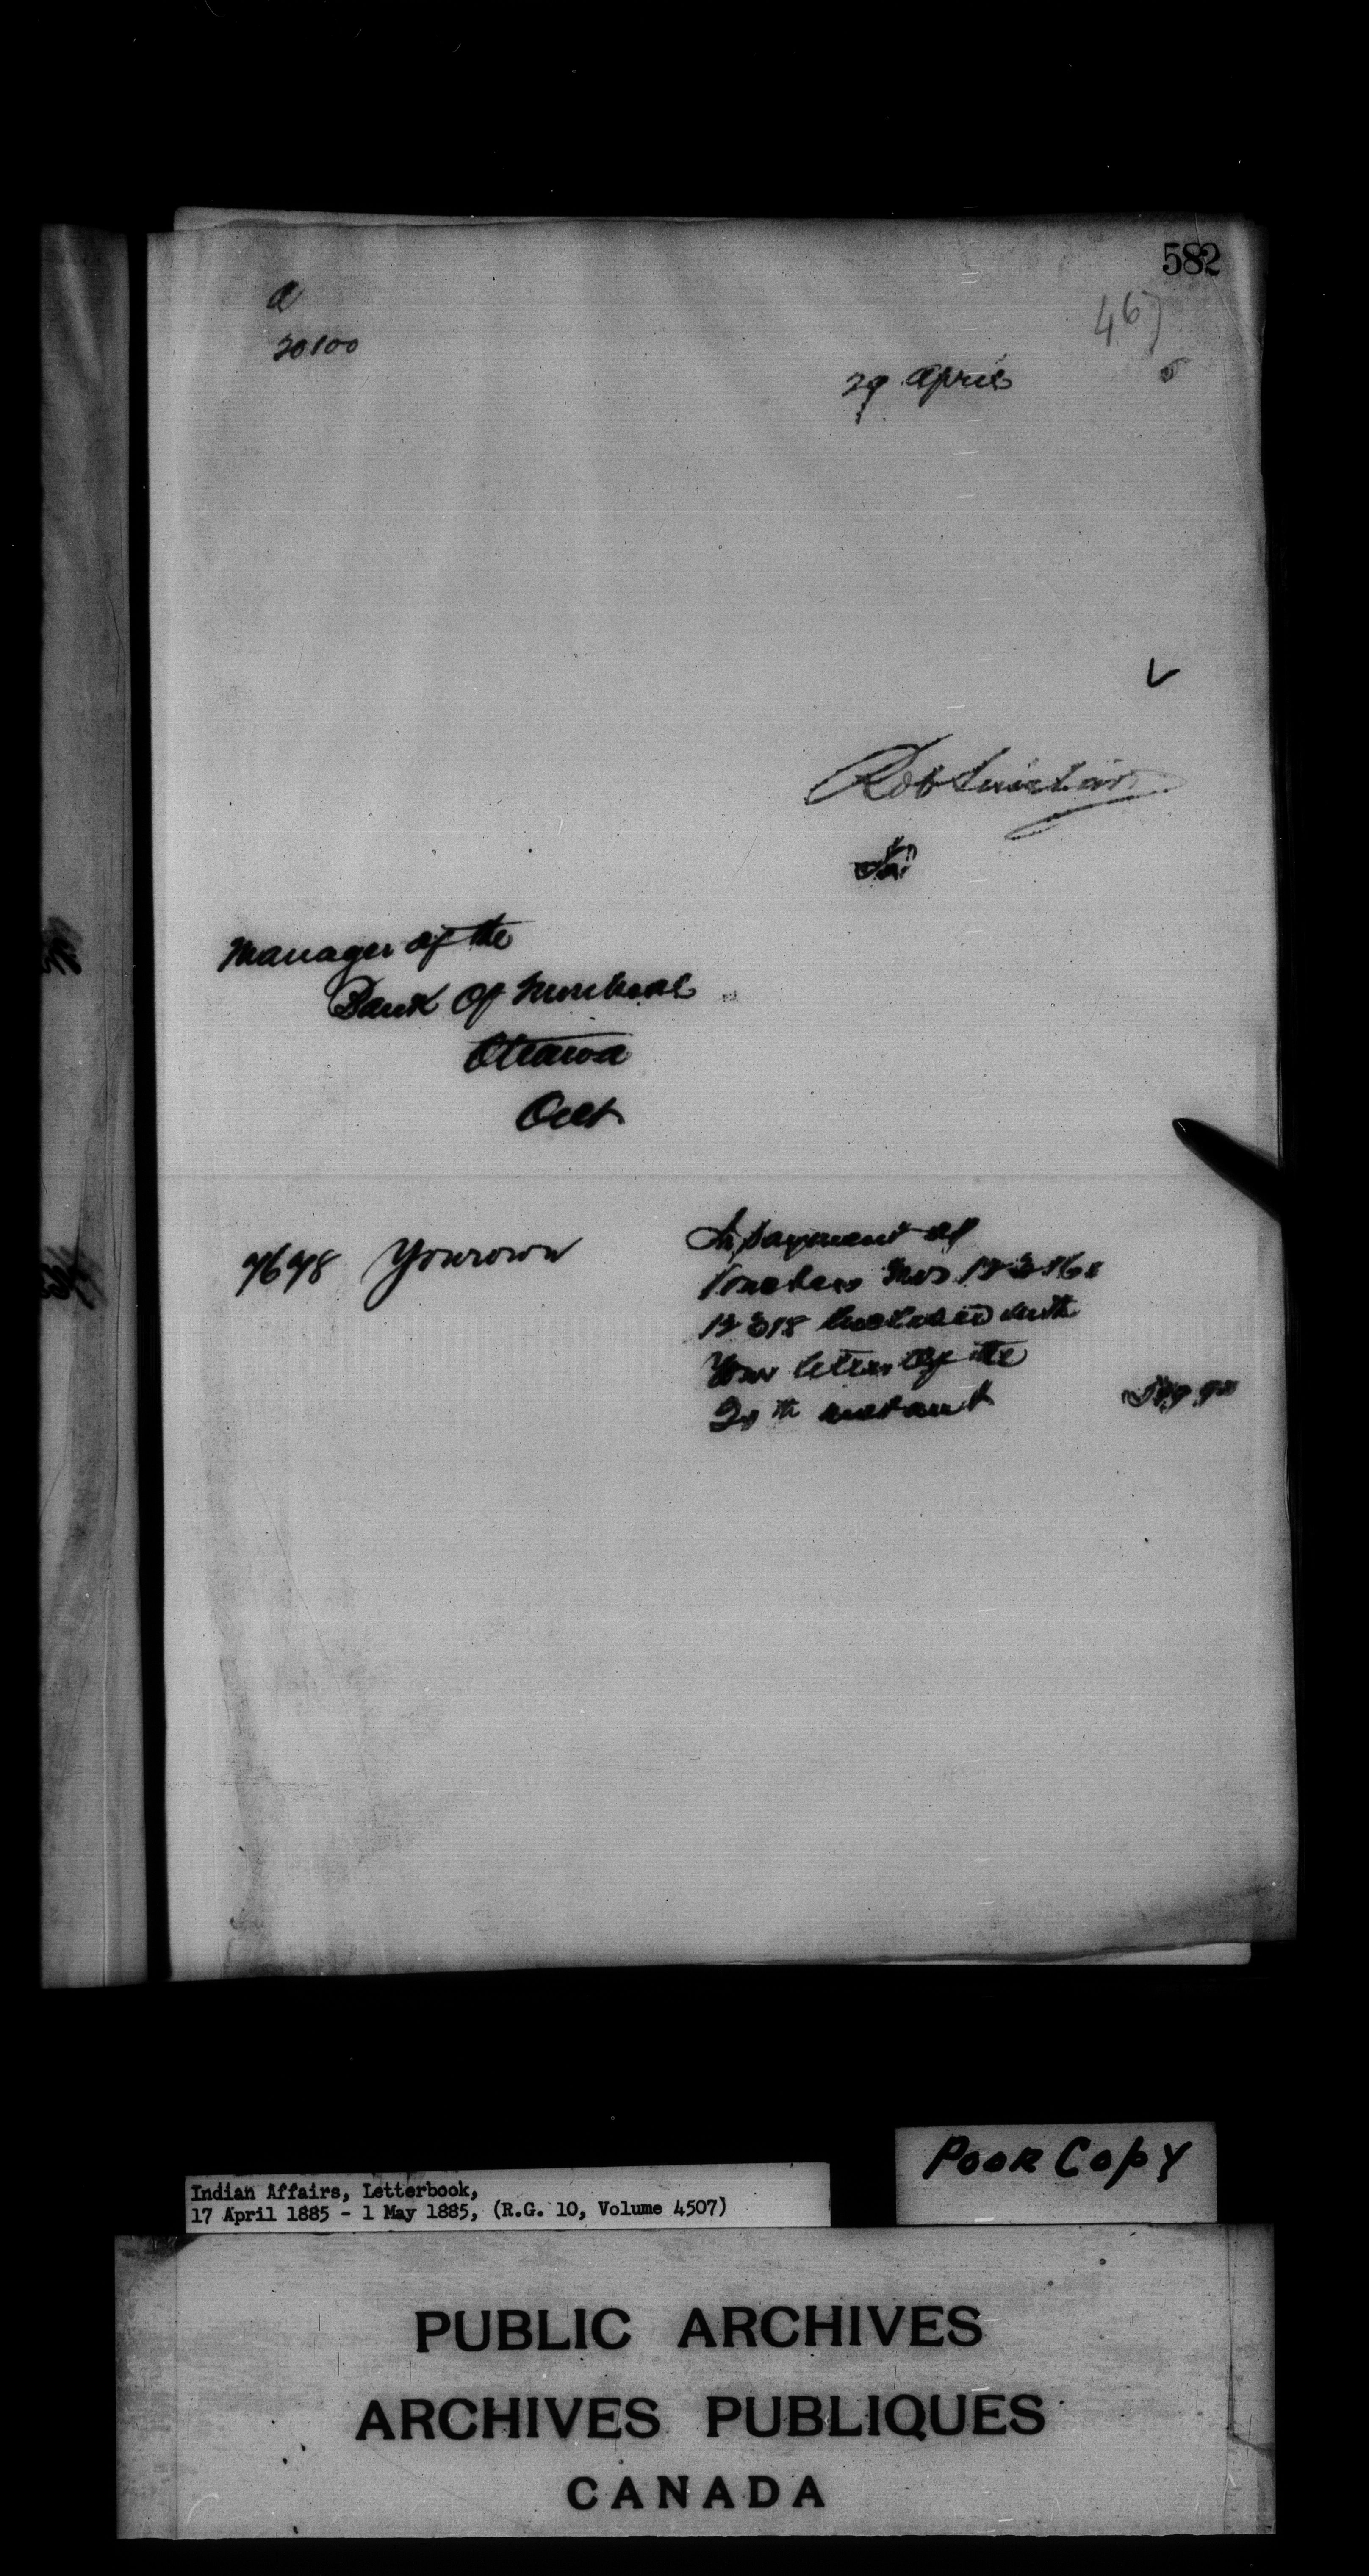 582
467
a
20100
29 April 5
Rob Sinclair
Manager of the
Bank Of Montreal
Ottawa
Ont
7678 Your own
In payment of
Vouchers Nos
enclosed with
Your letter of the
instant
Poor Copy
Indian Affairs, Letterbook,
17 April 1885 - 1 May 1885, (R.G. 10, Volume 4507)
PUBLIC ARCHIVES
ARCHIVES PUBLIQUES
CANADA